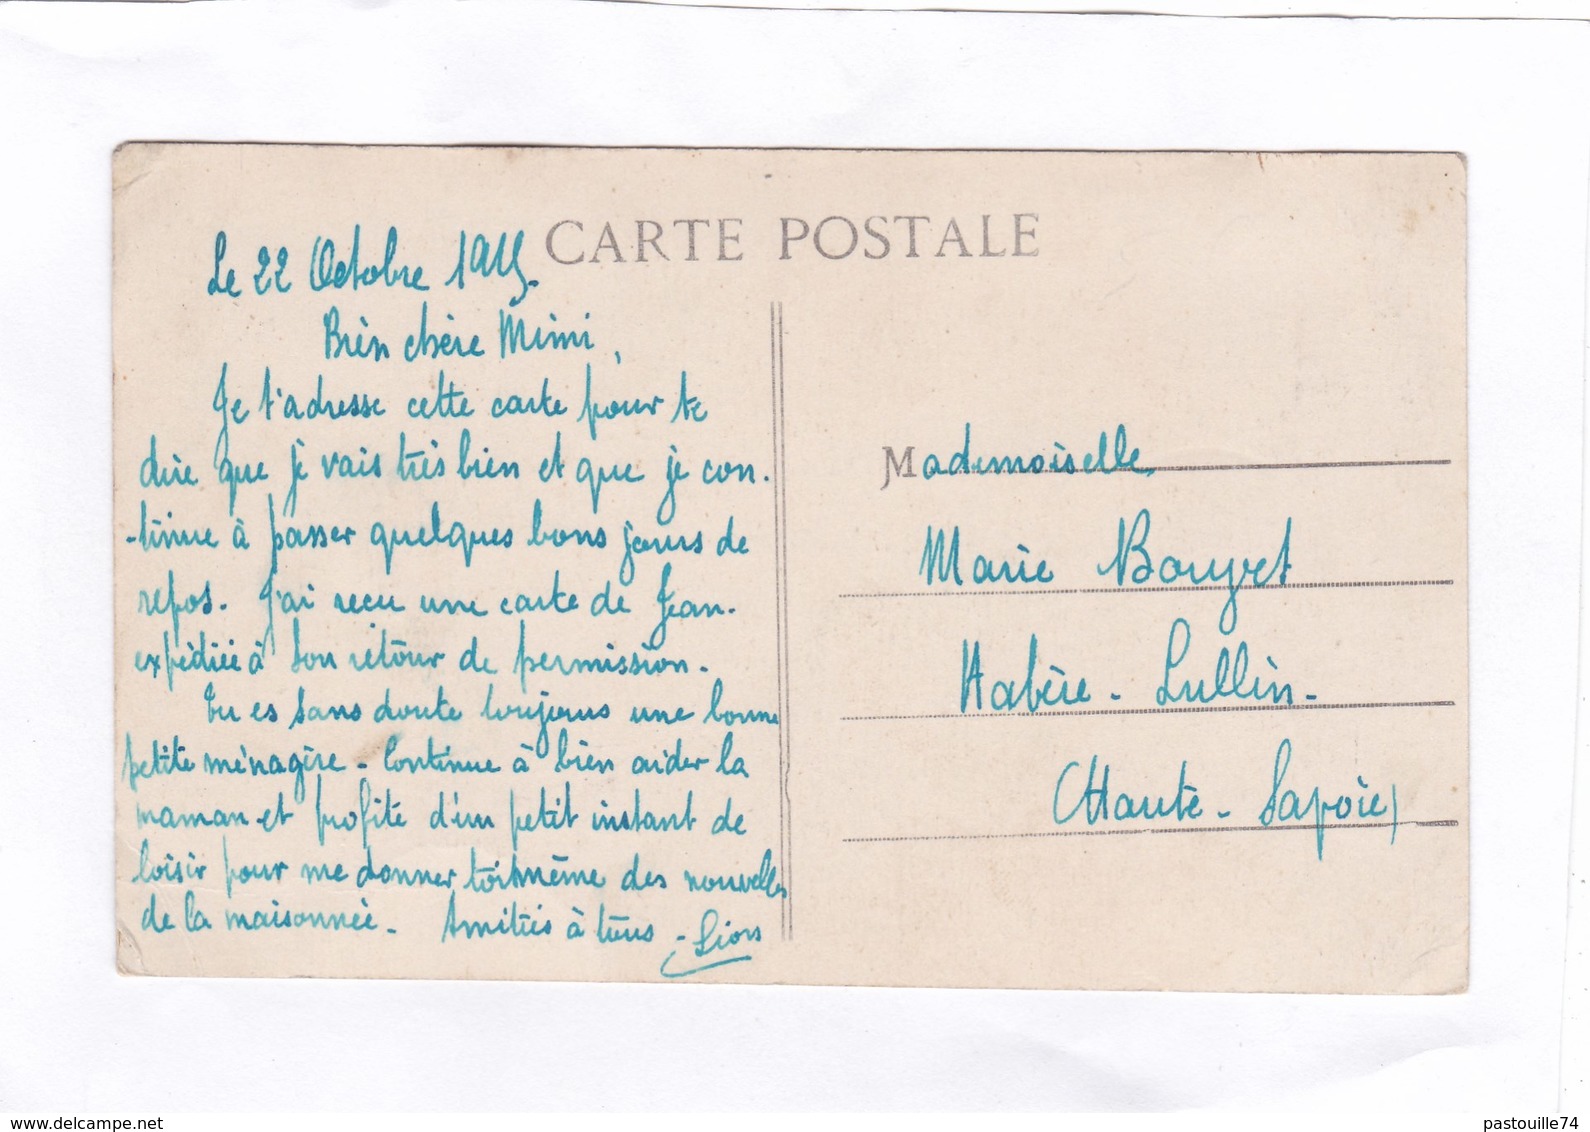 CARTE POSTALE
Le 22 Octobre 1915.
Bien chère Mimi,
Je t'adresse cette carte pour te
dire que je vais très bien et que je con-
-tinue à passer quelques bons jours de
repos. J'ai reçu une carte de Jean.
expédiée à son retour de permission.
Tu es sans doute toujours une bonne
petite ménagère. Continue à bien aider la
maman et profite d'un petit instant de
loisir pour me donner toi-même des nouvelles
de la maisonnée. Amitiés à tous -
Mademoiselle
Marie Bouvet
Habère-Lullin-
(Haute-Savoie)
www.delcampe.net
pastouille74